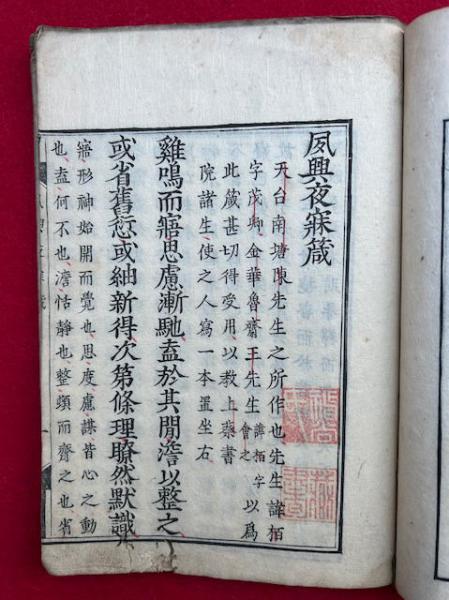 夙興夜寐箴
天台南塘陳先生之所作也先生諱栢
字茂卿金華魯齋王先生諱栢字會之以爲
此箴甚切得受用以教上蔡書
院諸生使之人寫一本置坐右
雞鳴而寤思慮漸馳盍於其閒澹以整之
或省舊愆或紬新得次第條理瞭然默識
寤形神始開而覺也思度慮謀皆心之動
也盍何不也澹恬靜也整頓而齊之也省